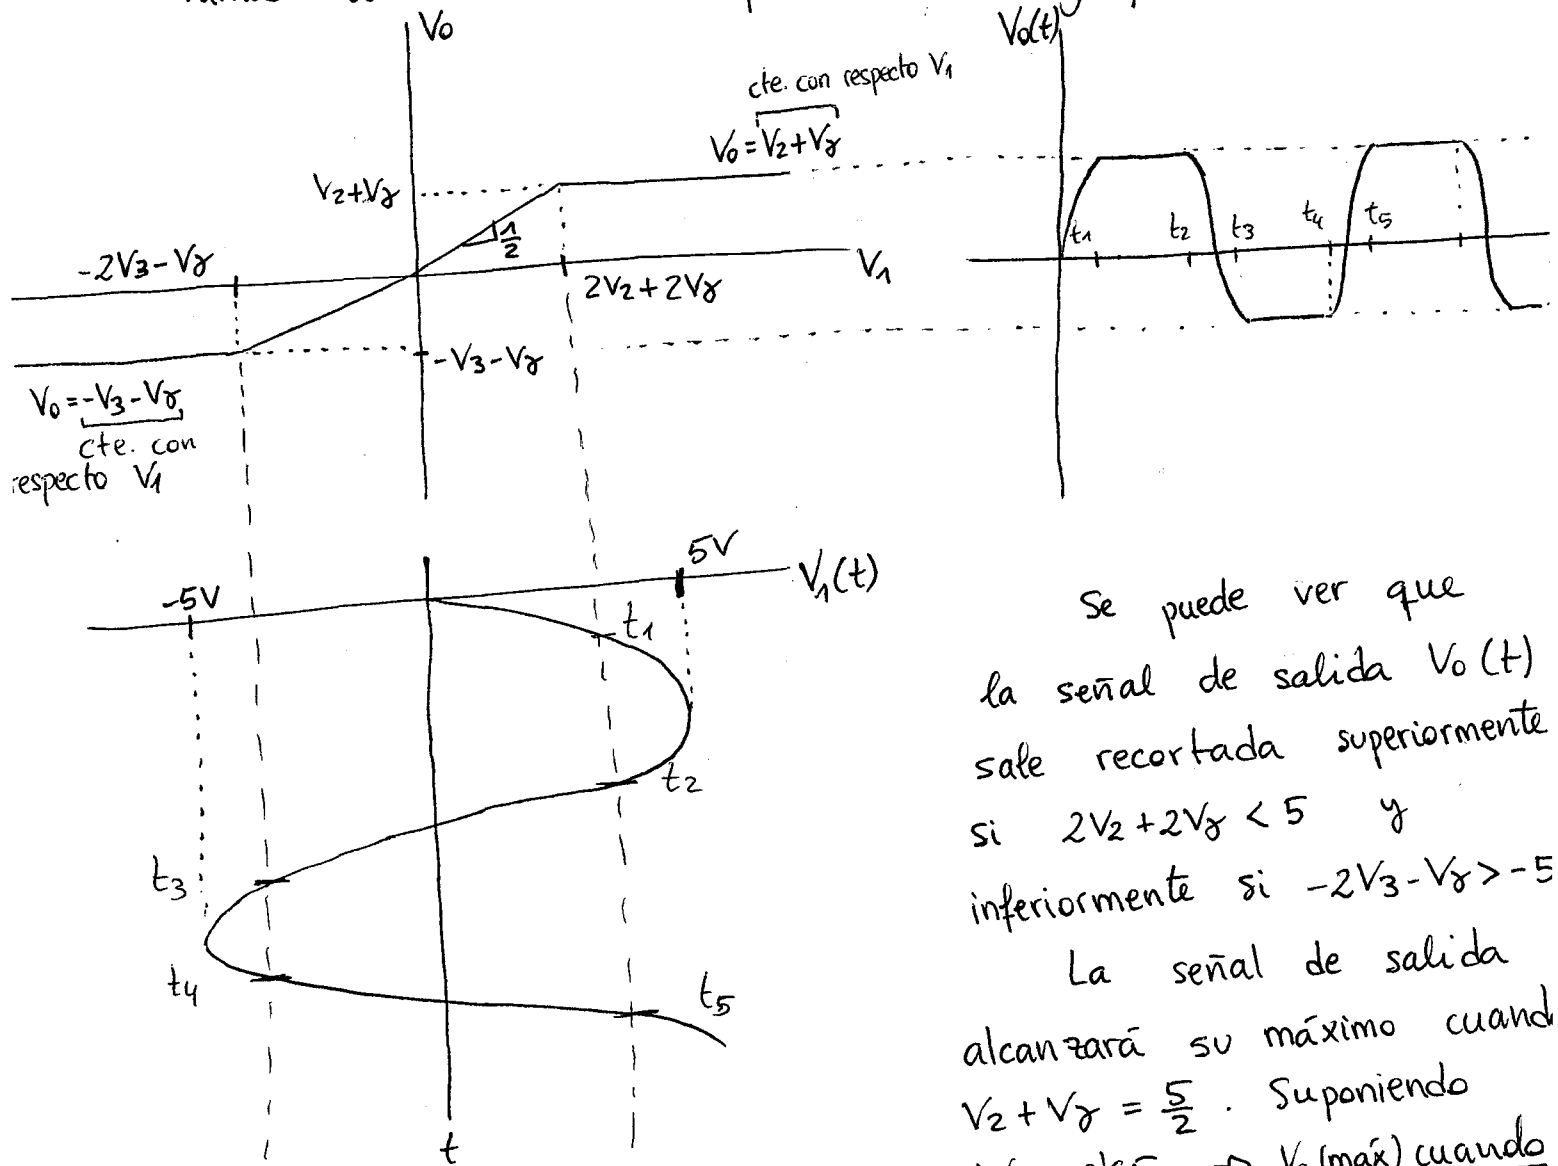 V0
V0(t)
cte. con respecto V1
V0 = V2 + Vγ
V2 + Vγ
1/2
t1 t2 t3 t4 t5
-2V3 - Vγ
2V2 + 2Vγ
V1
-V3 - Vγ
V0 = -V3 - Vγ
cte. con
respecto V1
-5V
5V
V1(t)
t1
t2
t3
t4
t5
t
Se puede ver que
la señal de salida V0(t)
sale recortada superiormente
si 2V2 + 2Vγ < 5 y
inferiormente si -2V3 - Vγ > -5
La señal de salida
alcanzará su máximo cuand
V2 + Vγ = 5/2 . Suponiendo
⇒ V0 (máx) cuando